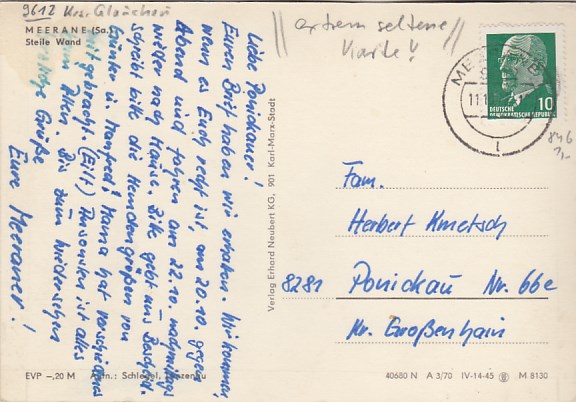 9612 Krs. Glauchau
MEERANE (Sa.)
Steile Wand
//extrem seltene//
Karte!
Liebe Ponickauer!
Euren Brief haben wir erhalten. Wir kommen,
wenn es Euch recht ist, am 20.10. gegen
Abend und fahren am 22.10. nachmittags
wieder nach Hause. Bitte gebt uns Bescheid.
Schreibt bitte die Hemdengrößen von
Günter u. Manfred! Mama hat verschiedenes
mitgebracht. (Eilt) Ansonsten ist alles
beim Alten. Bis zum Wiedersehen
Grüße
Eure Meeraner!
Verlag Erhard Neubert KG, 901 Karl-Marx-Stadt
MEERANE
11.1
1
10
DEUTSCHE
DEMOKRATISCHE REPUBLIK
846
Fam.
Herbert Kmetsch
8281 Ponickau Nr. 66e
Kr. Großenhain
EVP –,20 M Aufn.: Schlegel,
40680 N A 3/70 IV-14-45 M 8130